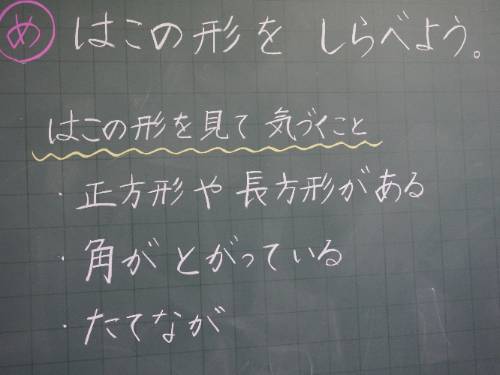 め はこの形を しらべよう。
はこの形を見て 気づくこと
・正方形や長方形がある
・角がとがっている
・たてなが